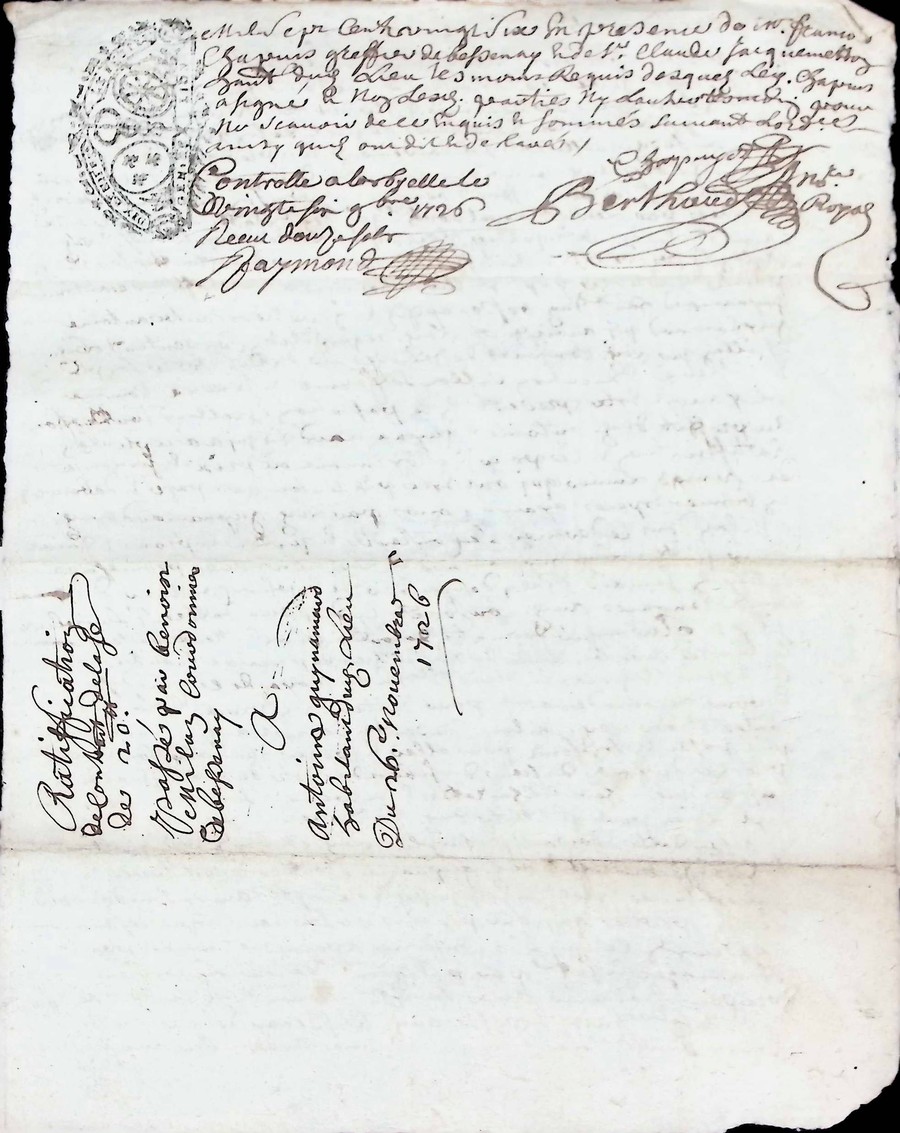 Mil sept cent vingt six en presence de mr. francois
Chapuis greffier de bessenay & de Sr. Claude Jacquemetton
habt. dud. Lieu tesmoins Requis desquez Ley. Chapuis
a signé & Non Les. parties Ny Lautre tesmoin pour
Ne scavoir de ce enquis & sommés suivant Lord.
ainsy quils ont dit & declaré /
Chapuys
Berthaud Nre. Royal
Controllé a larbrelle le
Vingt six 9bre 1726
Receu douze sols
Raymond
Ratiffication
de Contract de
de 20.
Passé par benoist
Cordonnier
de bessenay
A
Antoine guynamard
habitant dud. Lieu
Du 26e. Novembre
1726